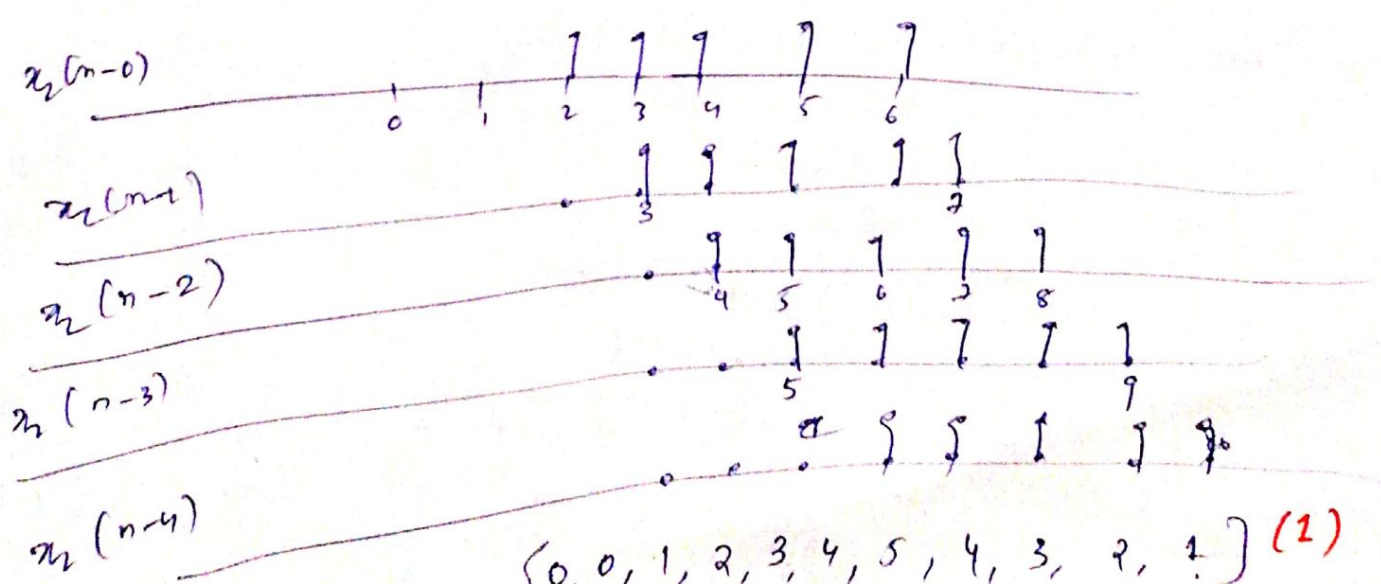 x₂(n-0)
0 1 2 3 4 5 6
x₂(n-1)
3 7
x₂(n-2)
4 5 6 7 8
x₂(n-3)
5 9
x₂(n-4)
{0, 0, 1, 2, 3, 4, 5, 4, 3, 2, 1} (1)